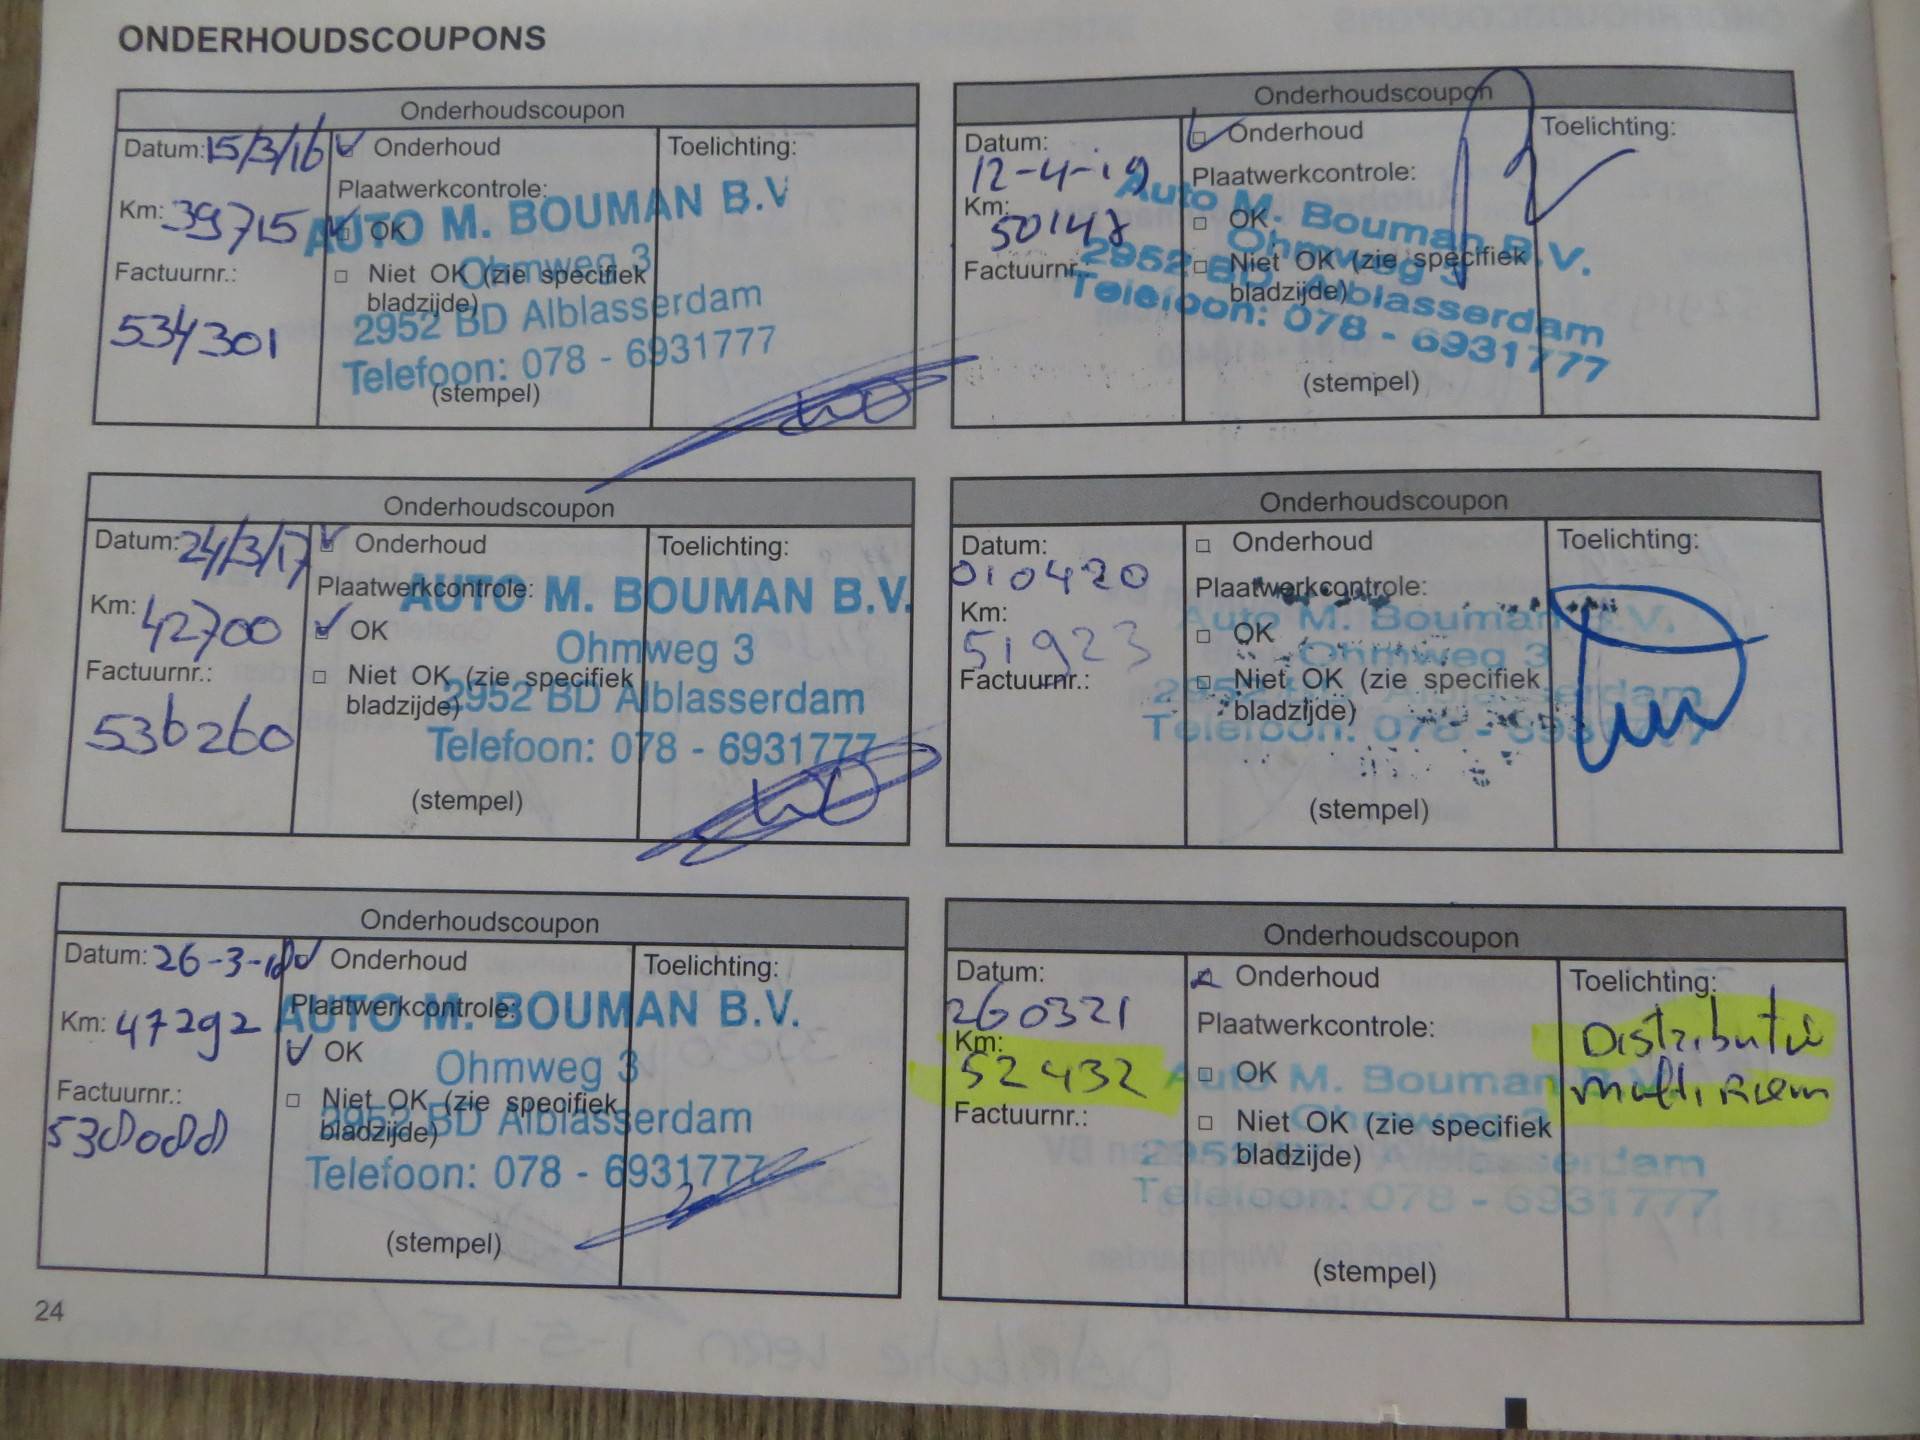 ONDERHOUDSCOUPONS
Onderhoudscoupon
Datum: 15/3/16
Onderhoud
Toelichting:
Plaatwerkcontrole:
Km: 39715
OK
Factuurnr.:
Niet OK (zie specifiek
bladzijde)
534301
AUTO M. BOUMAN B.V
Ohmweg 3
2952 BD Alblasserdam
Telefoon: 078 - 6931777
(stempel)
Onderhoudscoupon
Datum: 24/3/17
Onderhoud
Toelichting:
Plaatwerkcontrole:
Km: 42700
OK
Factuurnr.:
Niet OK (zie specifiek
bladzijde)
536260
AUTO M. BOUMAN B.V.
Ohmweg 3
2952 BD Alblasserdam
Telefoon: 078 - 6931777
(stempel)
Onderhoudscoupon
Datum: 26-3-18
Onderhoud
Toelichting:
Plaatwerkcontrole:
Km: 47292
OK
Factuurnr.:
Niet OK (zie specifiek
bladzijde)
538088
AUTO M. BOUMAN B.V.
Ohmweg 3
2952 BD Alblasserdam
Telefoon: 078 - 6931777
(stempel)
24
Onderhoudscoupon
Datum:
12-4-19
Onderhoud
Toelichting:
Plaatwerkcontrole:
Km:
50148
OK
Factuurnr.:
Niet OK (zie specifiek
bladzijde)
Auto M. Bouman B.V.
Ohmweg 3
2952 BD Alblasserdam
Telefoon: 078 - 6931777
(stempel)
Onderhoudscoupon
Datum:
010420
Onderhoud
Toelichting:
Plaatwerkcontrole:
Km:
51923
OK
Factuurnr.:
Niet OK (zie specifiek
bladzijde)
Auto M. Bouman B.V.
Ohmweg 3
2952 BD Alblasserdam
Telefoon: 078 - 6931777
(stempel)
Onderhoudscoupon
Datum:
260321
Onderhoud
Toelichting:
Distributie
multi Riem
Plaatwerkcontrole:
Km:
52432
OK
Factuurnr.:
Niet OK (zie specifiek
bladzijde)
Auto M. Bouman B.V.
Ohmweg 3
2952 BD Alblasserdam
Telefoon: 078 - 6931777
(stempel)